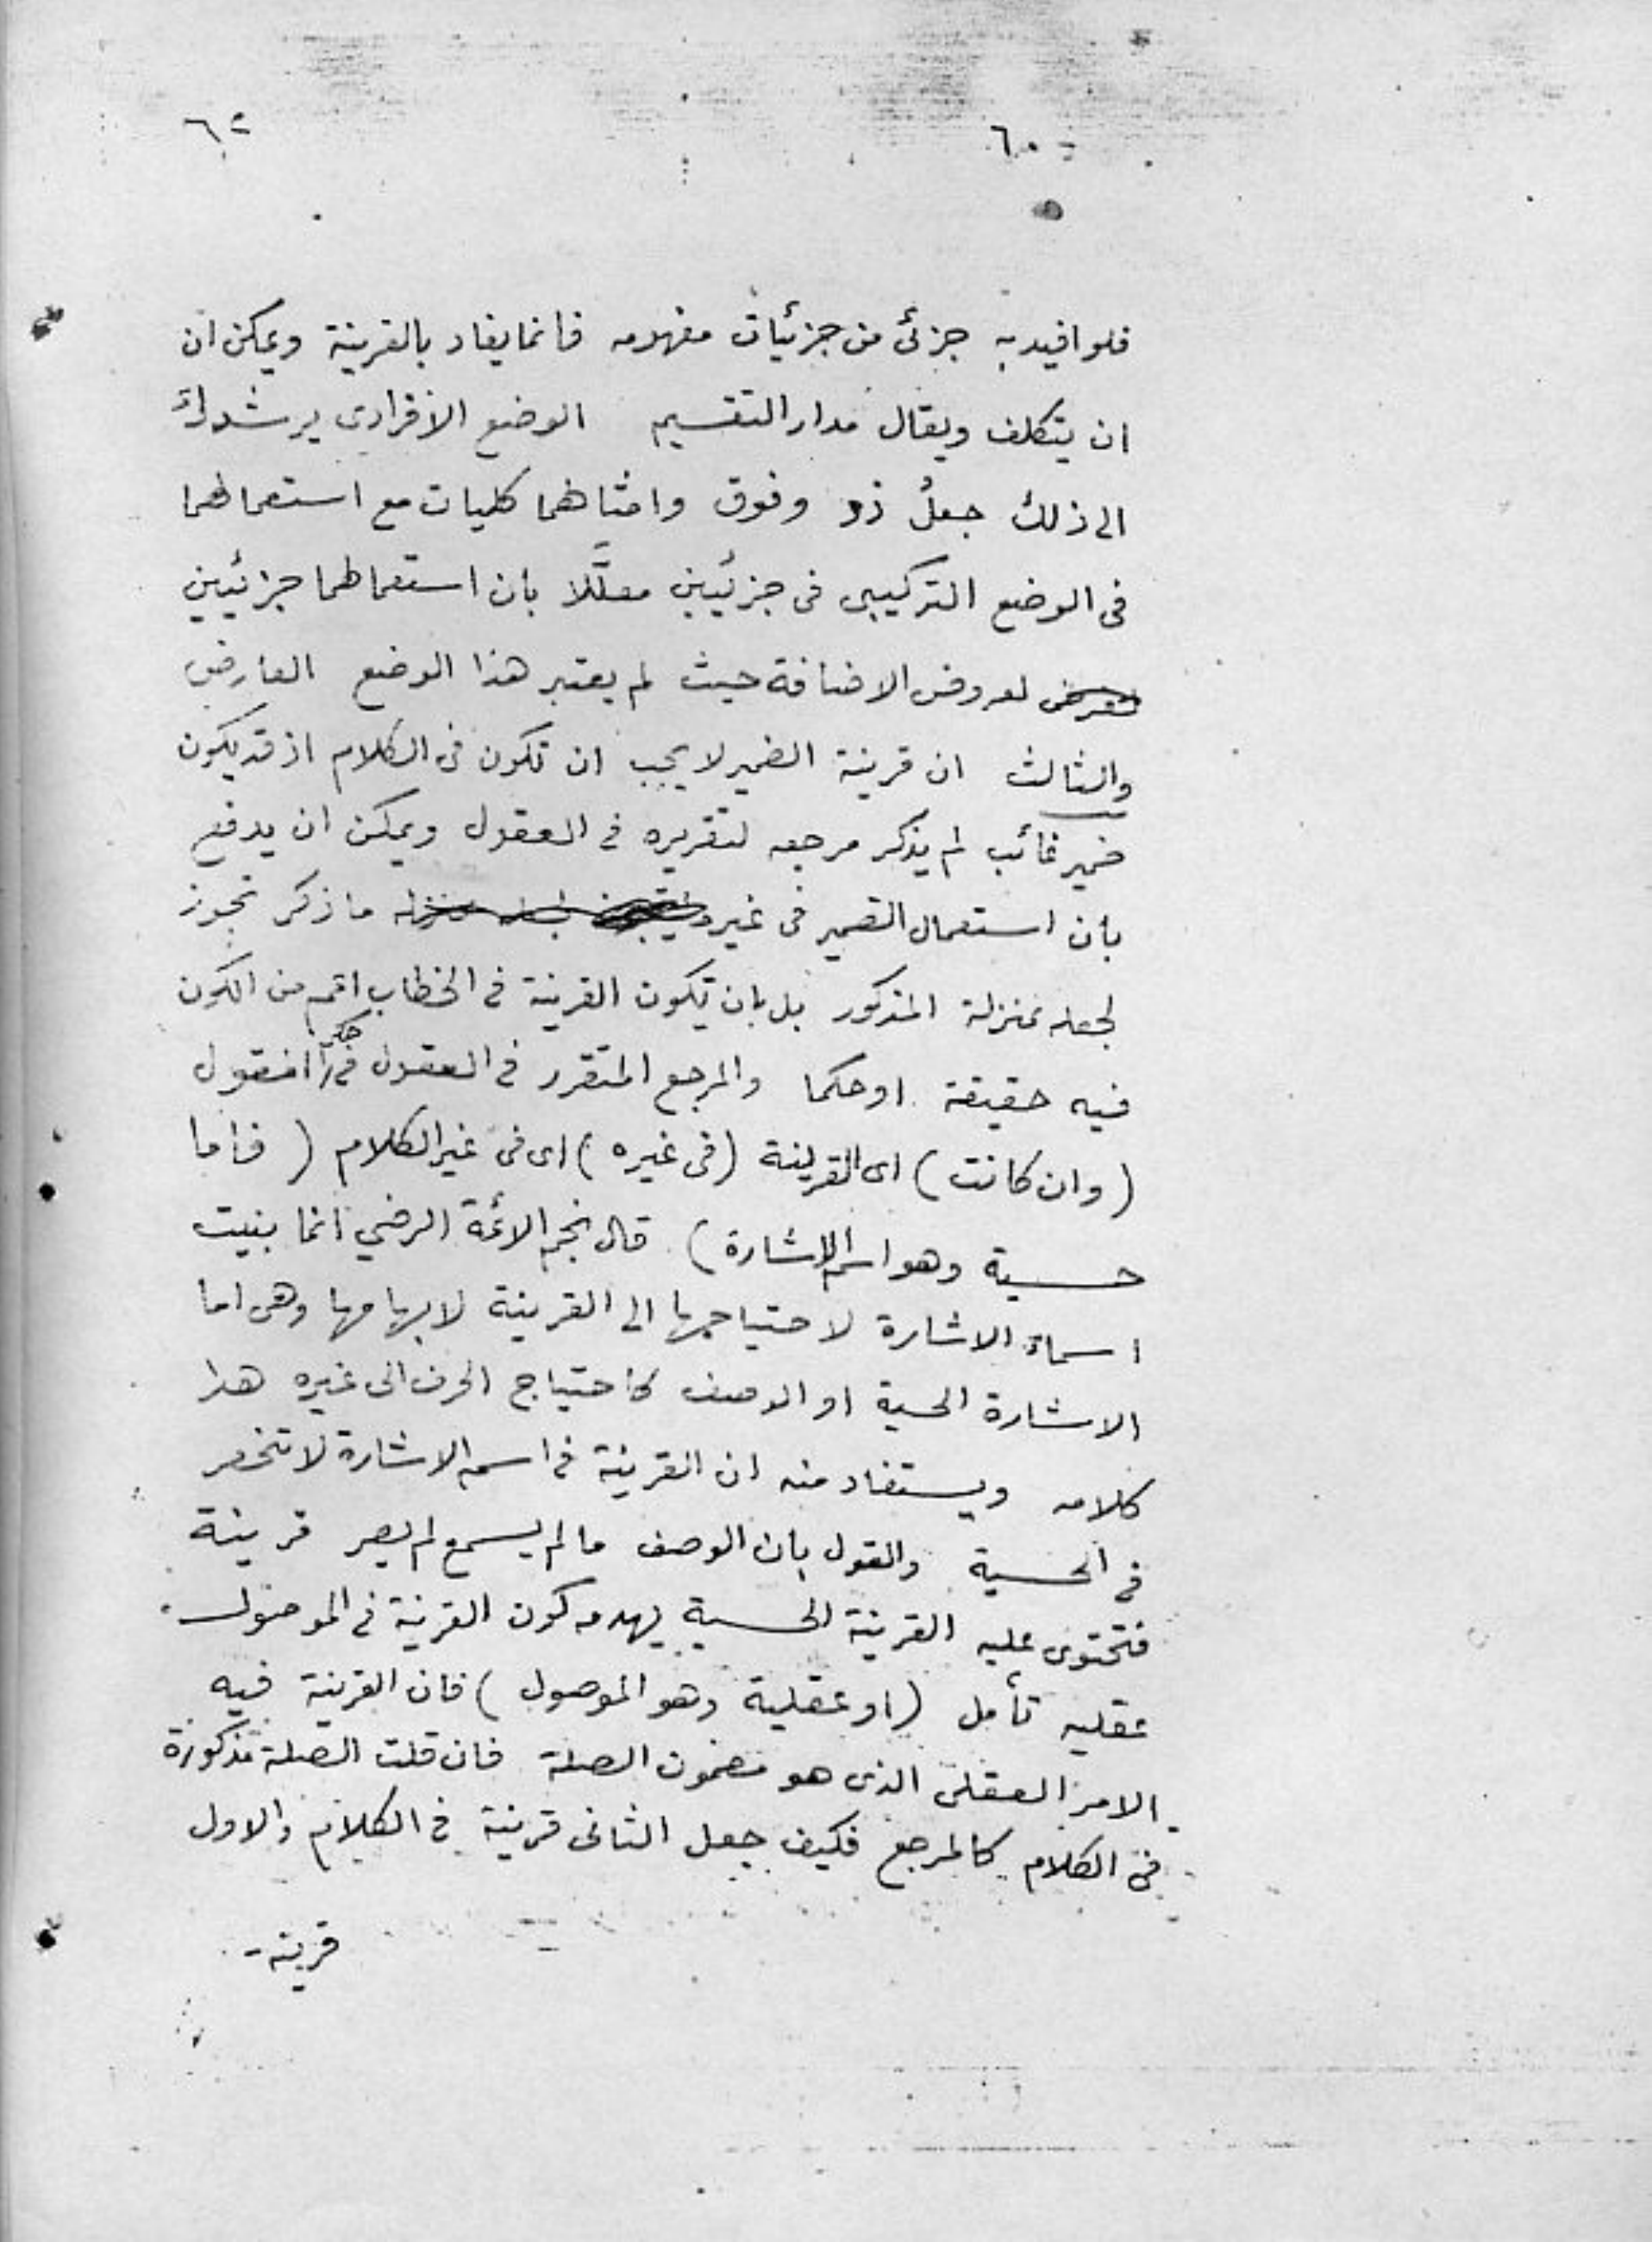 ٦٠
٦٢
فلو افيد به جزئ من جزئيات مفهومه فانما يفاد بالقرينة ويمكن ان
ان يتكلف ويقال مدار التقسيم الوضع الافرادى يرشدك
الى ذلك جعلُ ذو وفوق وامثالهما كليات مع استعمالهما
فى الوضع التركيبى فى جزئيين معلَّلا بان استعمالهما جزئيين
لعروض الاضافة حيث لم يعتبر هذا الوضع العارضى
والثالث ان قرينة الضمير لا يجب ان تكون فى الكلام اذ قد يكون
ضمير غائب لم يذكر مرجعه لتقريره فى العقول ويمكن ان يدفع
بان استعمال الضمير فى غير ما ذكر تجوز
لجعله بمنزلة المذكور بل بان تكون القرينة فى الخطاب اعم من الكون
فيه حقيقة او حكما والمرجع المتقرر فى العقول فى حكم
(وان كانت) اى القرينة (فى غيره) اى فى غير الكلام (فاما
حسية وهو اسم الاشارة) قال نجم الائمة الرضي انما بنيت
اسماء الاشارة لاحتياجها الى القرينة لابهامها وهى اما
الاشارة الحسية او الوصف كاحتياج الحرف الى غيره هذا
كلامه ويستفاد منه ان القرينة فى اسم الاشارة لا تنحصر
فى الحسية والقول بان الوصف ما لم يسمع لم يصر قرينة
فتحتوى عليه القرينة الحسية يهدم كون القرينة فى الموصول
عقليه تأمل (او عقلية وهو الموصول) فان القرينة فيه
الامر العقلى الذى هو مضمون الصلة فان قلت الصلة مذكورة
فى الكلام كالمرجع فكيف جعل الثانى قرينة فى الكلام والاول
قرينة